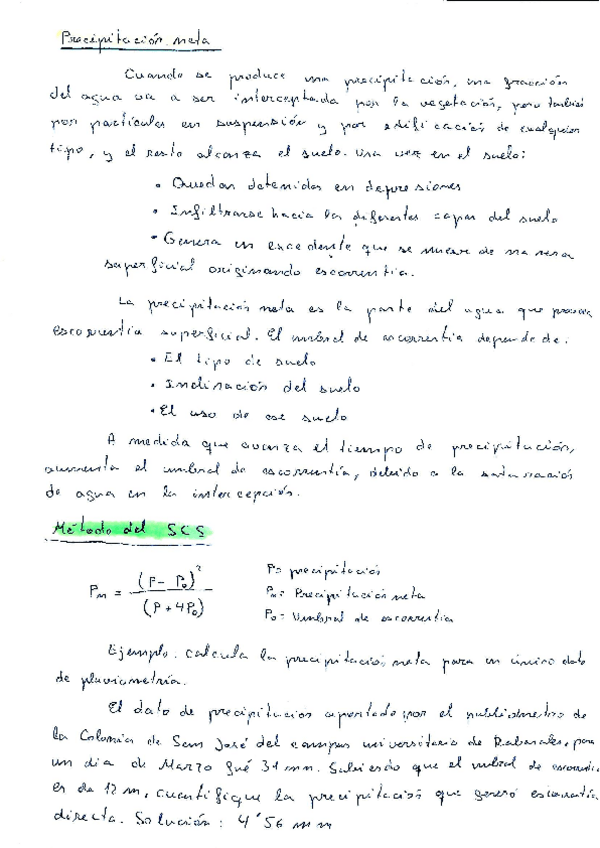 Precipitación neta
Cuando se produce una precipitación, una fracción
del agua va a ser interceptada por la vegetación, pero también
por partículas en suspensión y por edificación de cualquier
tipo, y el resto alcanza el suelo. Una vez en el suelo:
• Quedan detenidas en depresiones
• Infiltrarse hacia las diferentes capas del suelo
• Genera un excedente que se mueve de manera
superficial originando escorrentía.
La precipitación neta es la parte del agua que
escorrentía superficial. El umbral de escorrentía depende de:
• El tipo de suelo
• Inclinación del suelo
• El uso de ese suelo
A medida que avanza el tiempo de precipitación,
aumenta el umbral de escorrentía, debido a la saturación
de agua en la intercepción.
Método del SCS
Pn = (P - P0)² / (P + 4P0)
P= precipitación
Pn= Precipitación neta
P0= Umbral de escorrentía
Ejemplo. calcula la precipitación neta para un único dato
de pluviometría.
El dato de precipitación aportado por el de
la Colonia de San José del campus universitario de Rabanales, para
un día de Marzo fué 31 mm. Sabiendo que el umbral de escorrentía
es de 12 m, cuantifique la precipitación que generó escorrentía
directa. Solución: 4'56 mm